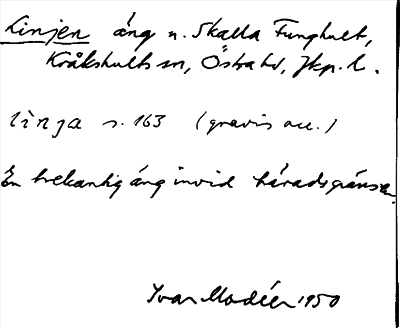 Linjen äng n. Skalla Funghult,
Kråkshults sn, Östra hd, Jkp. l.
linja s. 163 (gravis acc.)
En trekantig äng invid häradsgränsen.
Ivar Modéer 1950